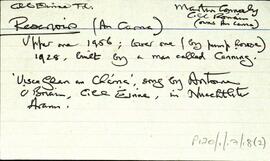 Cill Éinne Td.
Martin Conneely
Cill Rónáin
(now An Carna)
Reservoir (An Carna)
Upper one 1956; lower one (by pump house)
1928, built by a man called Canning.
'Uisce Glan an Chárna', song by Antoine
Ó Briain, Cill Éinne, in Nuachtlitir
Árann.
P120/1/2/18(2)